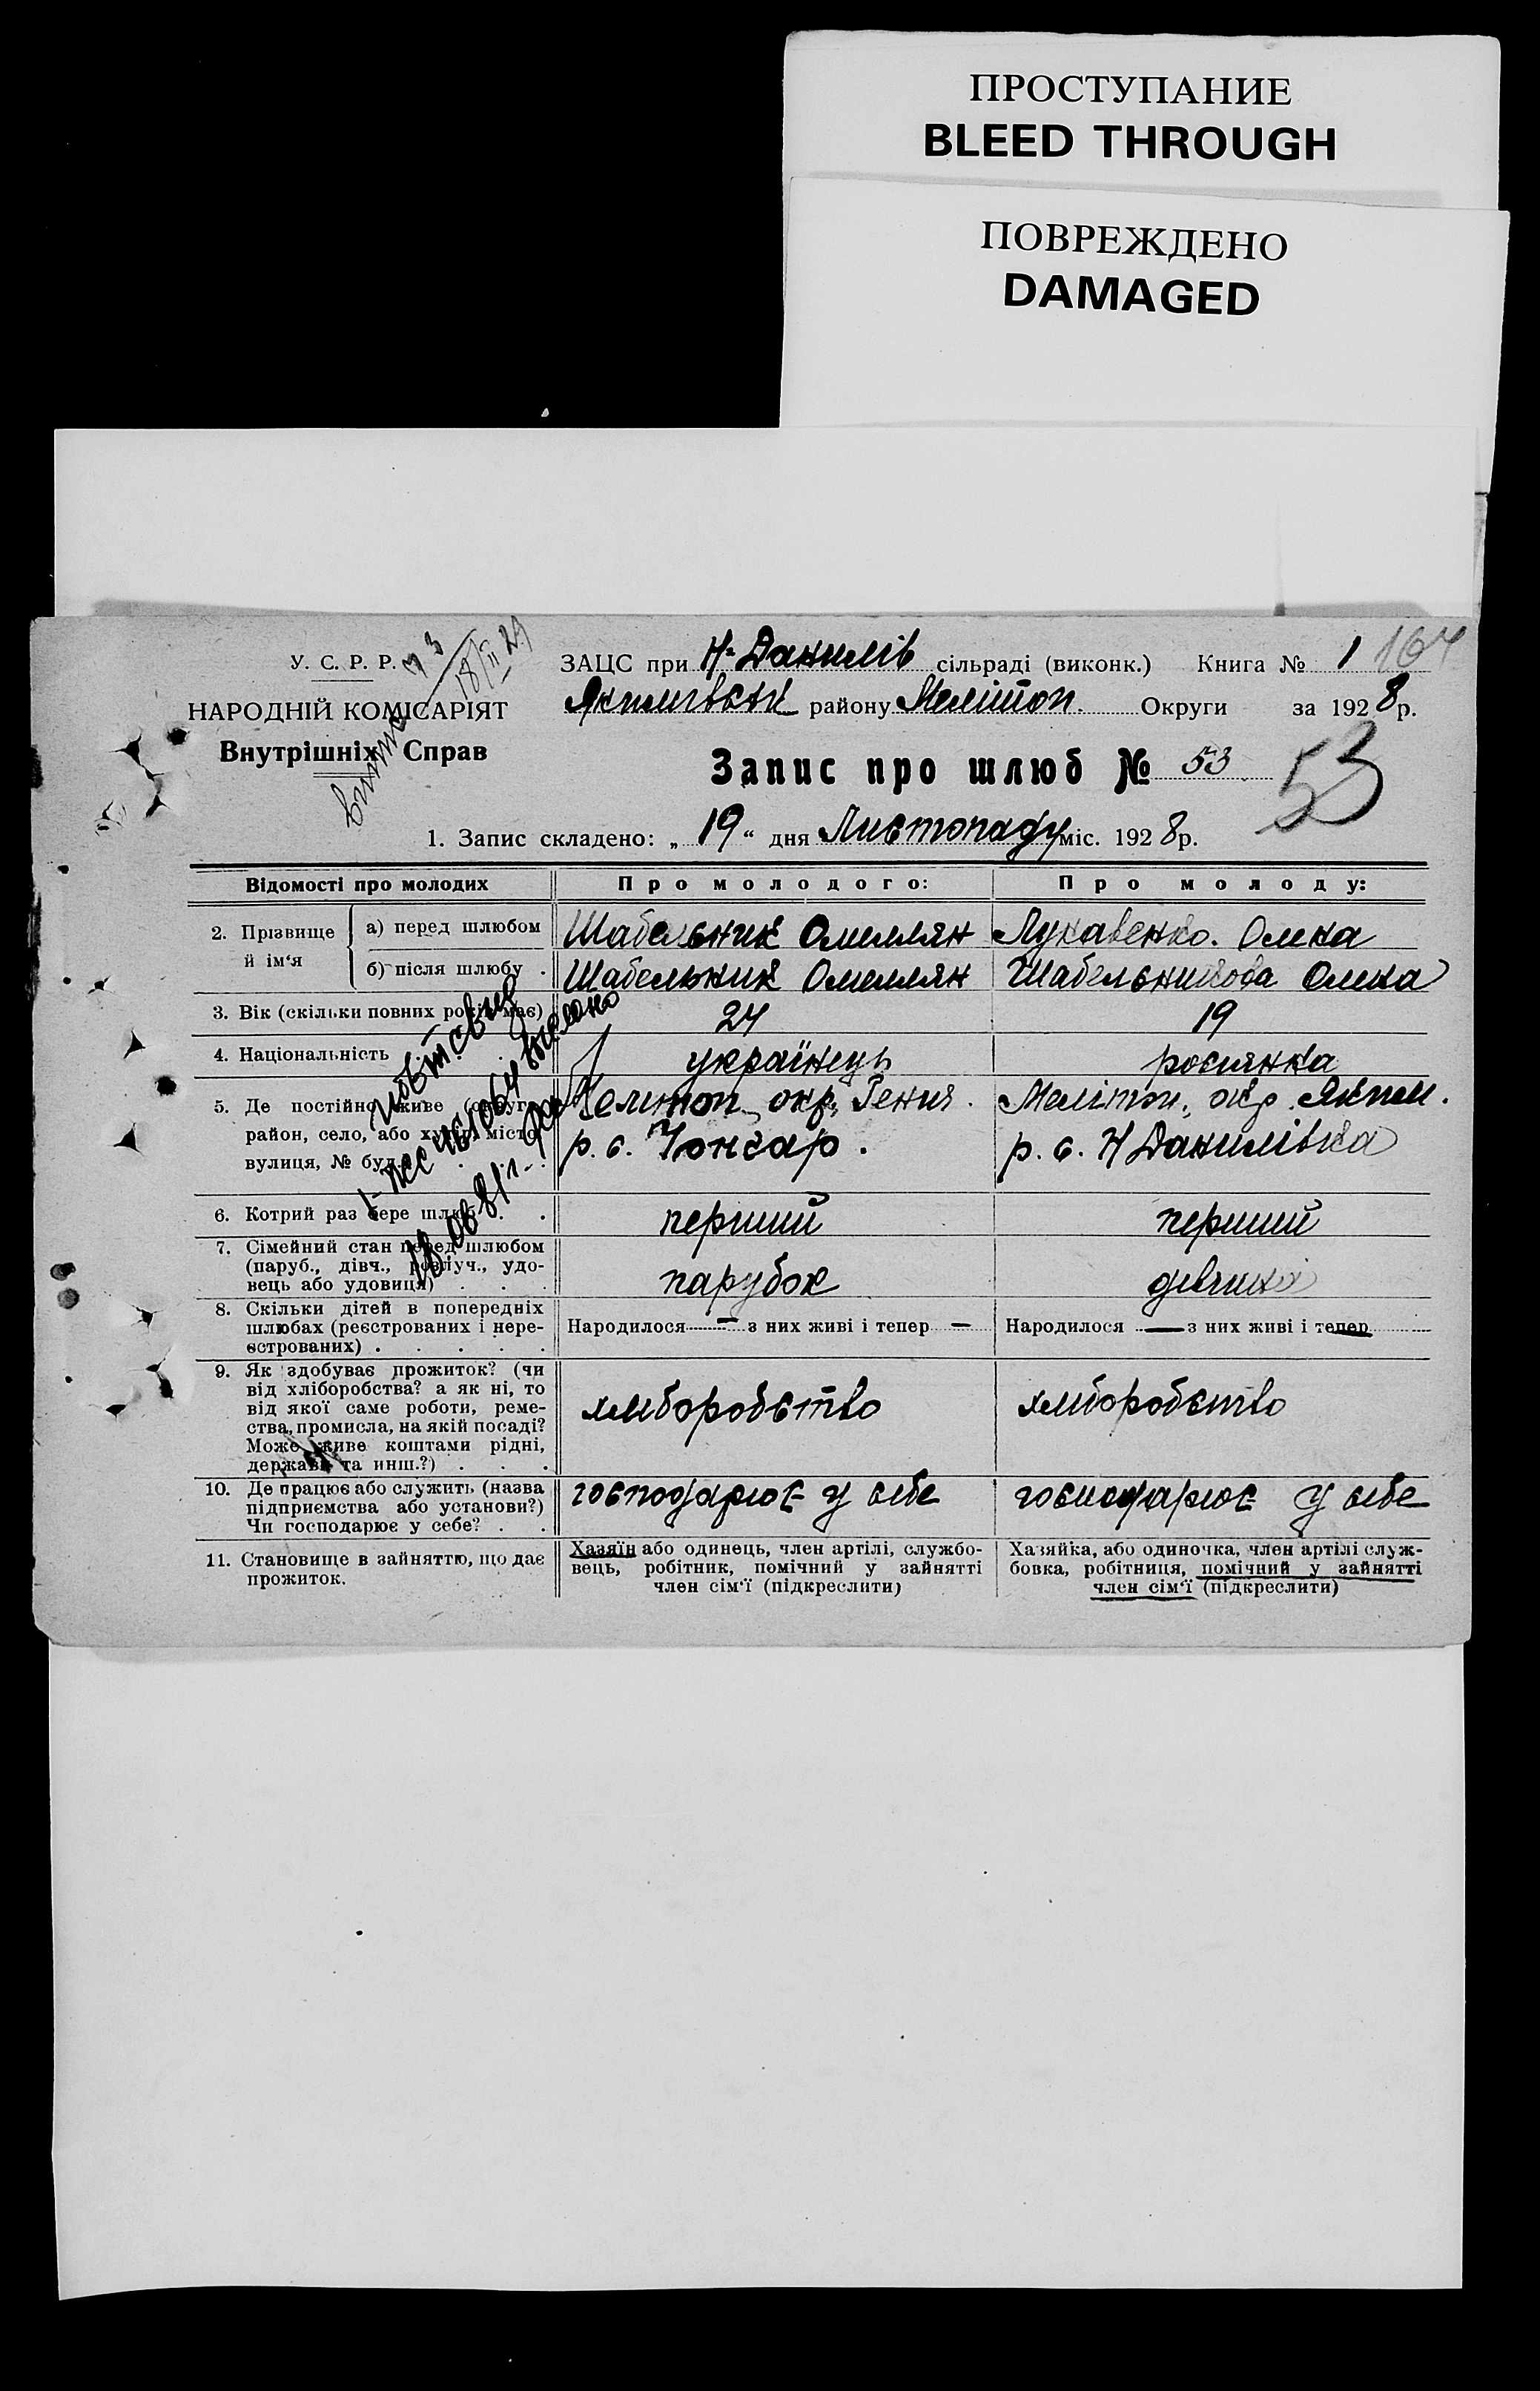 ПРОСТУПАНИЕ
BLEED THROUGH
ПОВРЕЖДЕНО
DAMAGED
У. С. Р. Р.
НАРОДНІЙ КОМІСАРІЯТ
Внутрішніх Справ
ЗАЦС при Н-Данилів сільраді (виконк.) Книга № 1 164
району Мелітоп. Округи за 1928 р.
Запис про шлюб № 53 53
1. Запис складено: „ 19 “ дня Листопаду міс. 1928 р.
Відомості про молодих Про молодого: Про молоду:
2. Прізвище й ім‘я
а) перед шлюбом Шабельник Омеллян Лукавенко. Олена
б) після шлюбу . Шабельник Омеллян Шабельникова Олена
3. Вік (скільки повних років має) 24 19
4. Національність українець росиянка
5. Де постійно живе (округа, Мелітоп окр. Генич. Мелітоп. окр. Якпм.
район, село, або хутір, місто, р. с. Чонгар. р. с. Н Данилівка
вулиця, № буд.
6. Котрий раз бере шлюб . . перший перший
7. Сімейний стан перед шлюбом
(паруб., дівч., розлуч., удо-
вець або удовиця) . . . парубок девчина
8. Скільки дітей в попередніх
шлюбах (реєстрованих і нере- Народилося — з них живі і тепер — Народилося — з них живі і тепер
єстрованих) . . . . .
9. Як здобуває прожиток? (чи
від хліборобства? а як ні, то
від якої саме роботи, реме- хліборобство хліборобство
ства, промисла, на якій посаді?
Може живе коштами рідні,
держави та инш.?) . . .
10. Де працює або служить (назва господарює у себе господарює у себе
підприємства або установи?)
Чи господарює у себе? . .
11. Становище в зайняттю, що дає Хазяїн або одинець, член артілі, службо- Хазяйка, або одиночка, член артілі служ-
прожиток. вець, робітник, помічний у зайнятті бовка, робітниця, помічний у зайнятті
член сім‘ї (підкреслити) член сім‘ї (підкреслити)